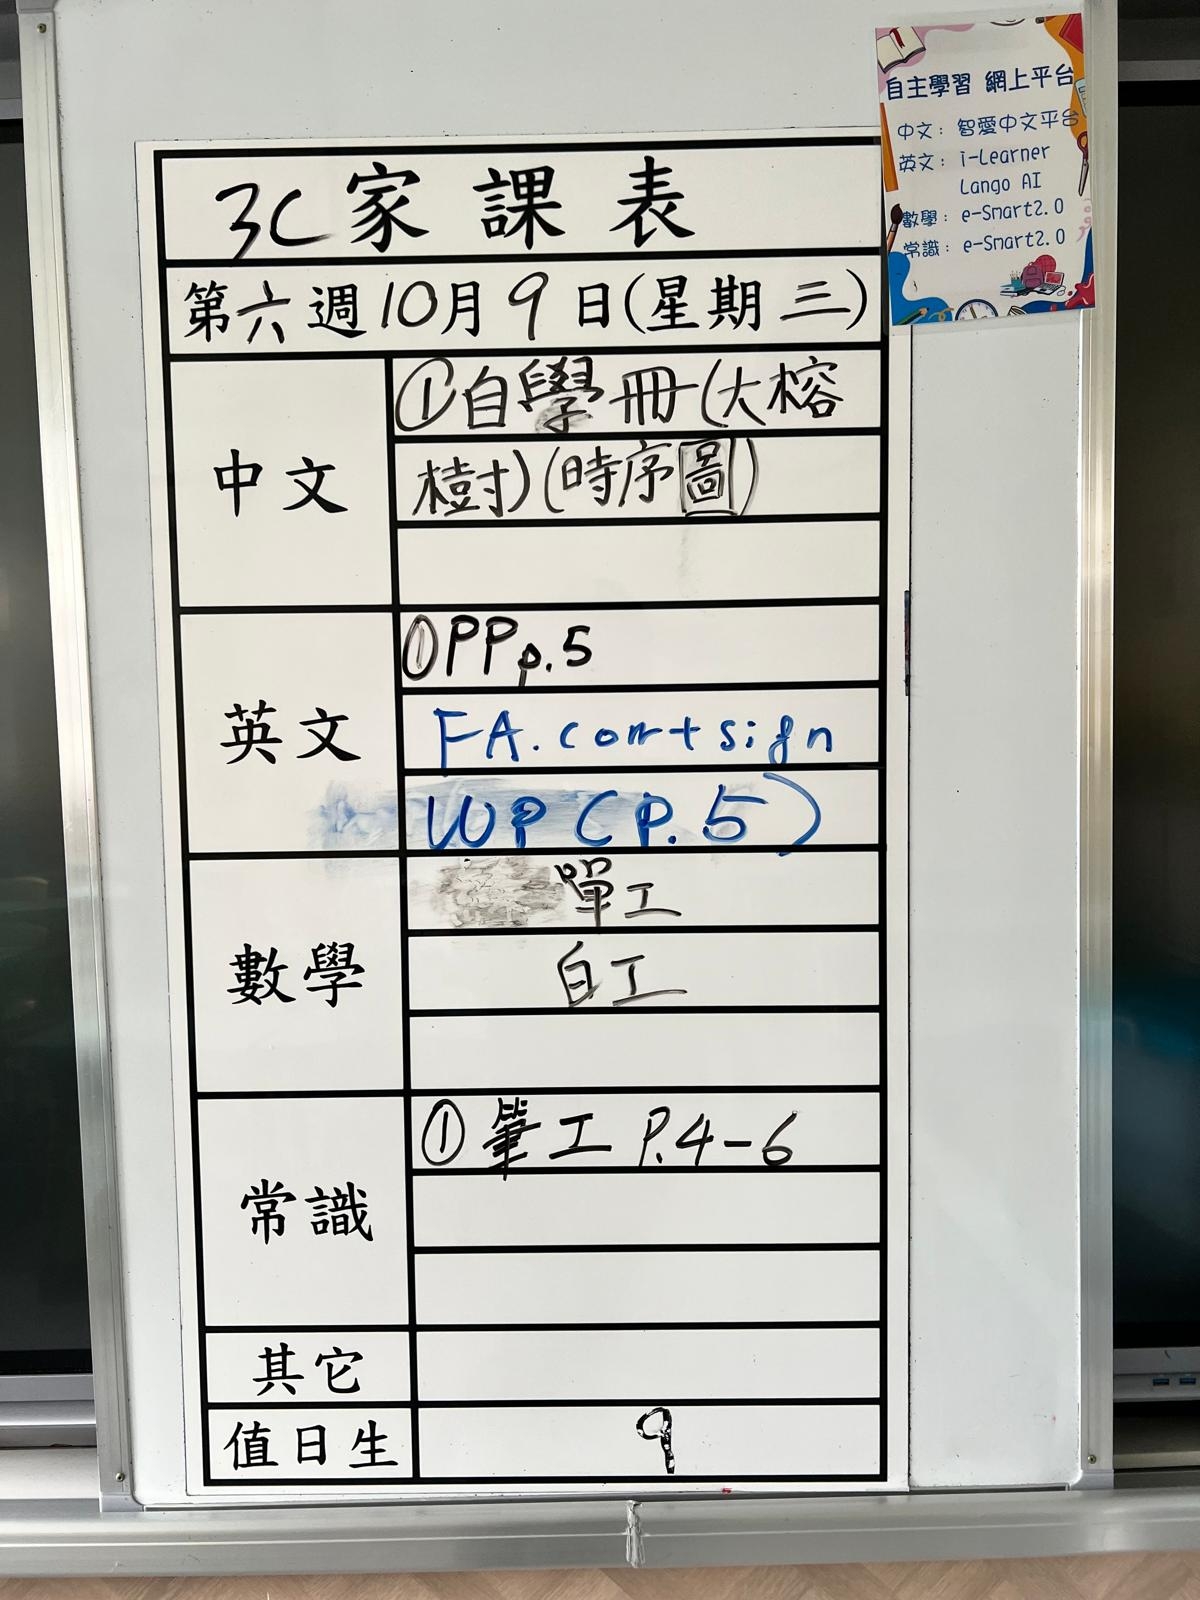 自主學習 網上平台
中文：智愛中文平台
英文：i-Learner
Lango AI
數學：e-Smart2.0
常識：e-Smart2.0
3C家課表
第六週10月9日(星期三)
中文
①自學冊(大榕
樹)(時序圖)
英文
①PP p.5
FA. corr+sign
WP (P.5)
數學
單工
白工
常識
①筆工 P.4-6
其它
值日生
9